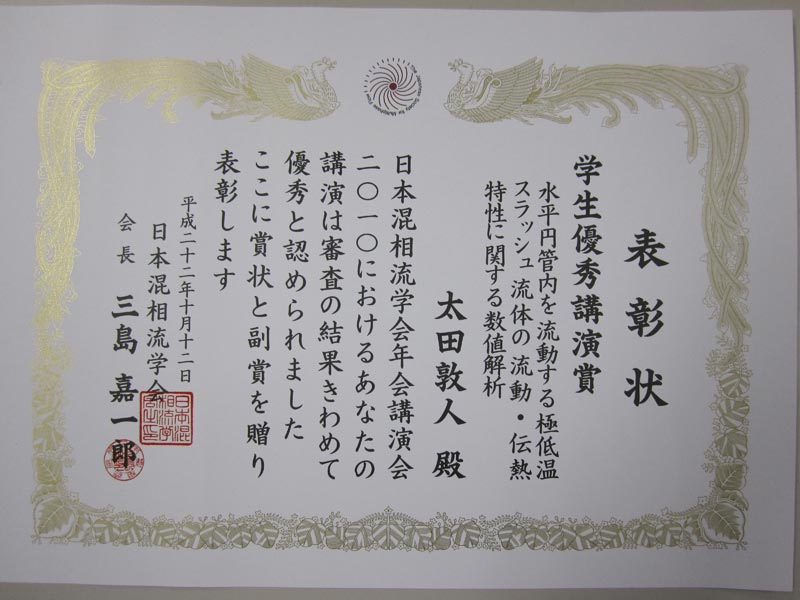 表彰状
学生優秀講演賞
水平円管内を流動する極低温
スラッシュ流体の流動・伝熱
特性に関する数値解析
太田敦人 殿
日本混相流学会年会講演会
二〇一〇におけるあなたの
講演は審査の結果きわめて
優秀と認められました
ここに賞状と副賞を贈り
表彰します
平成二十二年十月十二日
日本混相流学会
会長 三島嘉一郎